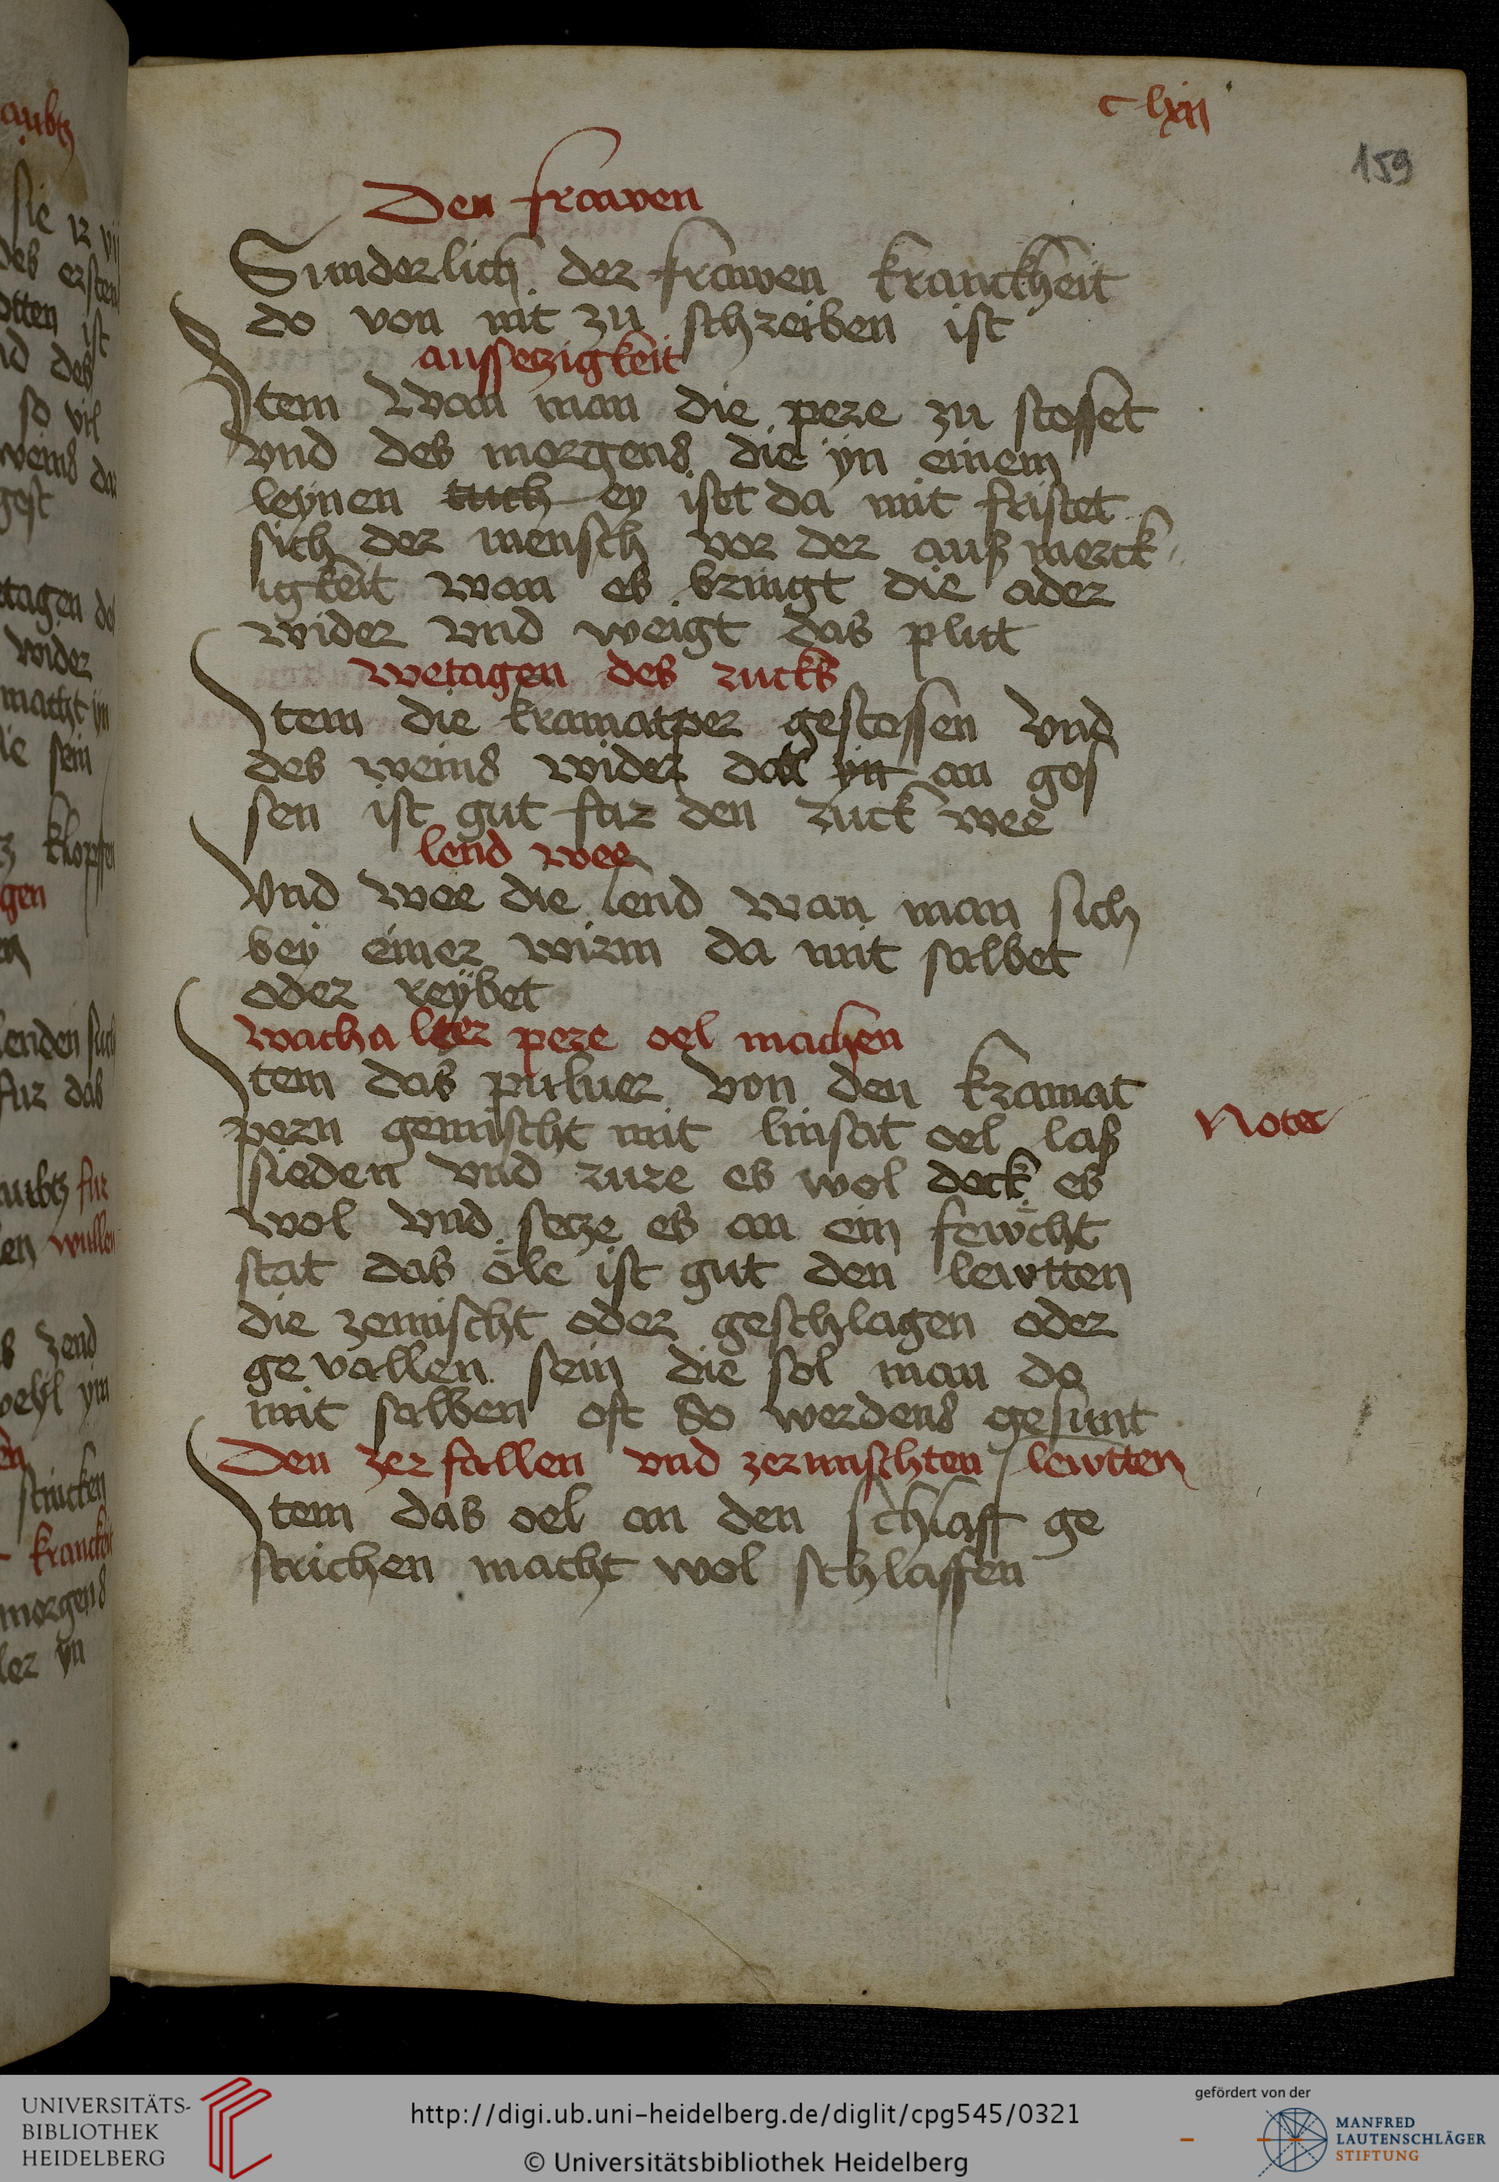 c lxii
159
Den frawen
Sunderlich der frawen kranckheit
do von nit zu schreiben ist
aussetzigkeit
Item Wan man die pere zu stosset
vnd des morgens die yn einem
leynen tuch ey isct da mit fristet
sich der mensch vor der auß merck
igkeit wan es bringt die ader
wider vnd weigt das plut
wetagen des rucks
Item die kramatper gestossen Vnd
des weins wider an gos
sen ist gut fur den ruck wee
lend wee
Vnd wee die lend wan man sich
bey einer wirm da mit salbet
oder reybet
wachalter pere oel machen
Item das puluer von den kramat
pern gemischt mit linsat oel laß
Nota
sieden vnd rure es wol deck es
wol vnd secze es an ein fewcht
stat das öle ist gut den lewtten
die zemischt oder geschlagen oder
ge vallen sein die sol man do
mit salben oft So werdens gesunt
Den zerfallen vnd zermischten lewtten
Item das oel an den schlaff ge
strichen macht wol schlaffen
aubtz
sie
des ersten
otten ist
nd des
so vil
weins
gest
etagen
wider
macht yn
ie sein
klopffen
gen
lenden
fur das
aubtz fur
en wullen
zend
stucken
kranckheit
morgens
ler yn
UNIVERSITÄTS-
BIBLIOTHEK
HEIDELBERG
http://digi.ub.uni-heidelberg.de/diglit/cpg545/0321
© Universitätsbibliothek Heidelberg
gefördert von der
MANFRED
LAUTENSCHLÄGER
STIFTUNG